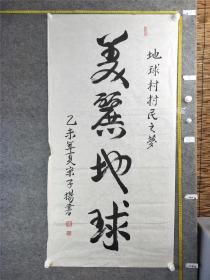 地球村村民之夢
美麗地球
乙未年夏宋子楊書